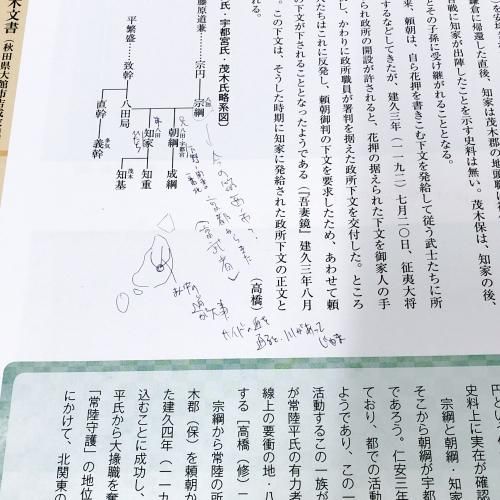 木文書（秋田県大館市
鎌倉に帰還した直後、知家は茂木郡の地頭職に
合戦に知家が出陣したことを示す史料は無い。茂木保は、知家の後、
とその子孫に受け継がれることとなる。
来、頼朝は、自ら花押を書きこむ下文を発給して従う武士たちに所
するなどしてきたが、建久三年（一一九二）七月二〇日、征夷大将
られ政所の開設が許されると、花押の据えられた下文を御家人の手
し、かわりに政所職員が署判を据えた政所下文を交付した。ところ
たちはこれに反発し、頼朝御判の下文を要求したため、あわせて頼
の下文が下されることとなったようである（『吾妻鏡』建久三年八月
。この下文は、そうした時期に知家に発給された政所下文の正文と
れる。
（高橋）
氏・宇都宮氏・茂木氏略系図）
藤原道兼 宗円 宗綱 朝綱 成綱
八田局 知家 知重
茂木
知基
平繁盛 致幹 直幹
多気
義幹
八田
宇都宮
京都から来た
（京武者）
円とし
史料上に実在が確認
宗綱と朝綱・知家
そこから朝綱が宇都
であろう。仁安三年
ており、都での活動
ようであり、この一
活動するこの一族が
が常陸平氏の有力者
線上の要衝の地・八
する［高橋（修）一
宗綱から常陸の所
木郡（保）を頼朝か
た建久四年（一一九
込むことに成功し、
平氏から大掾職を奪
「常陸守護」の地位
にかけて、北関東の